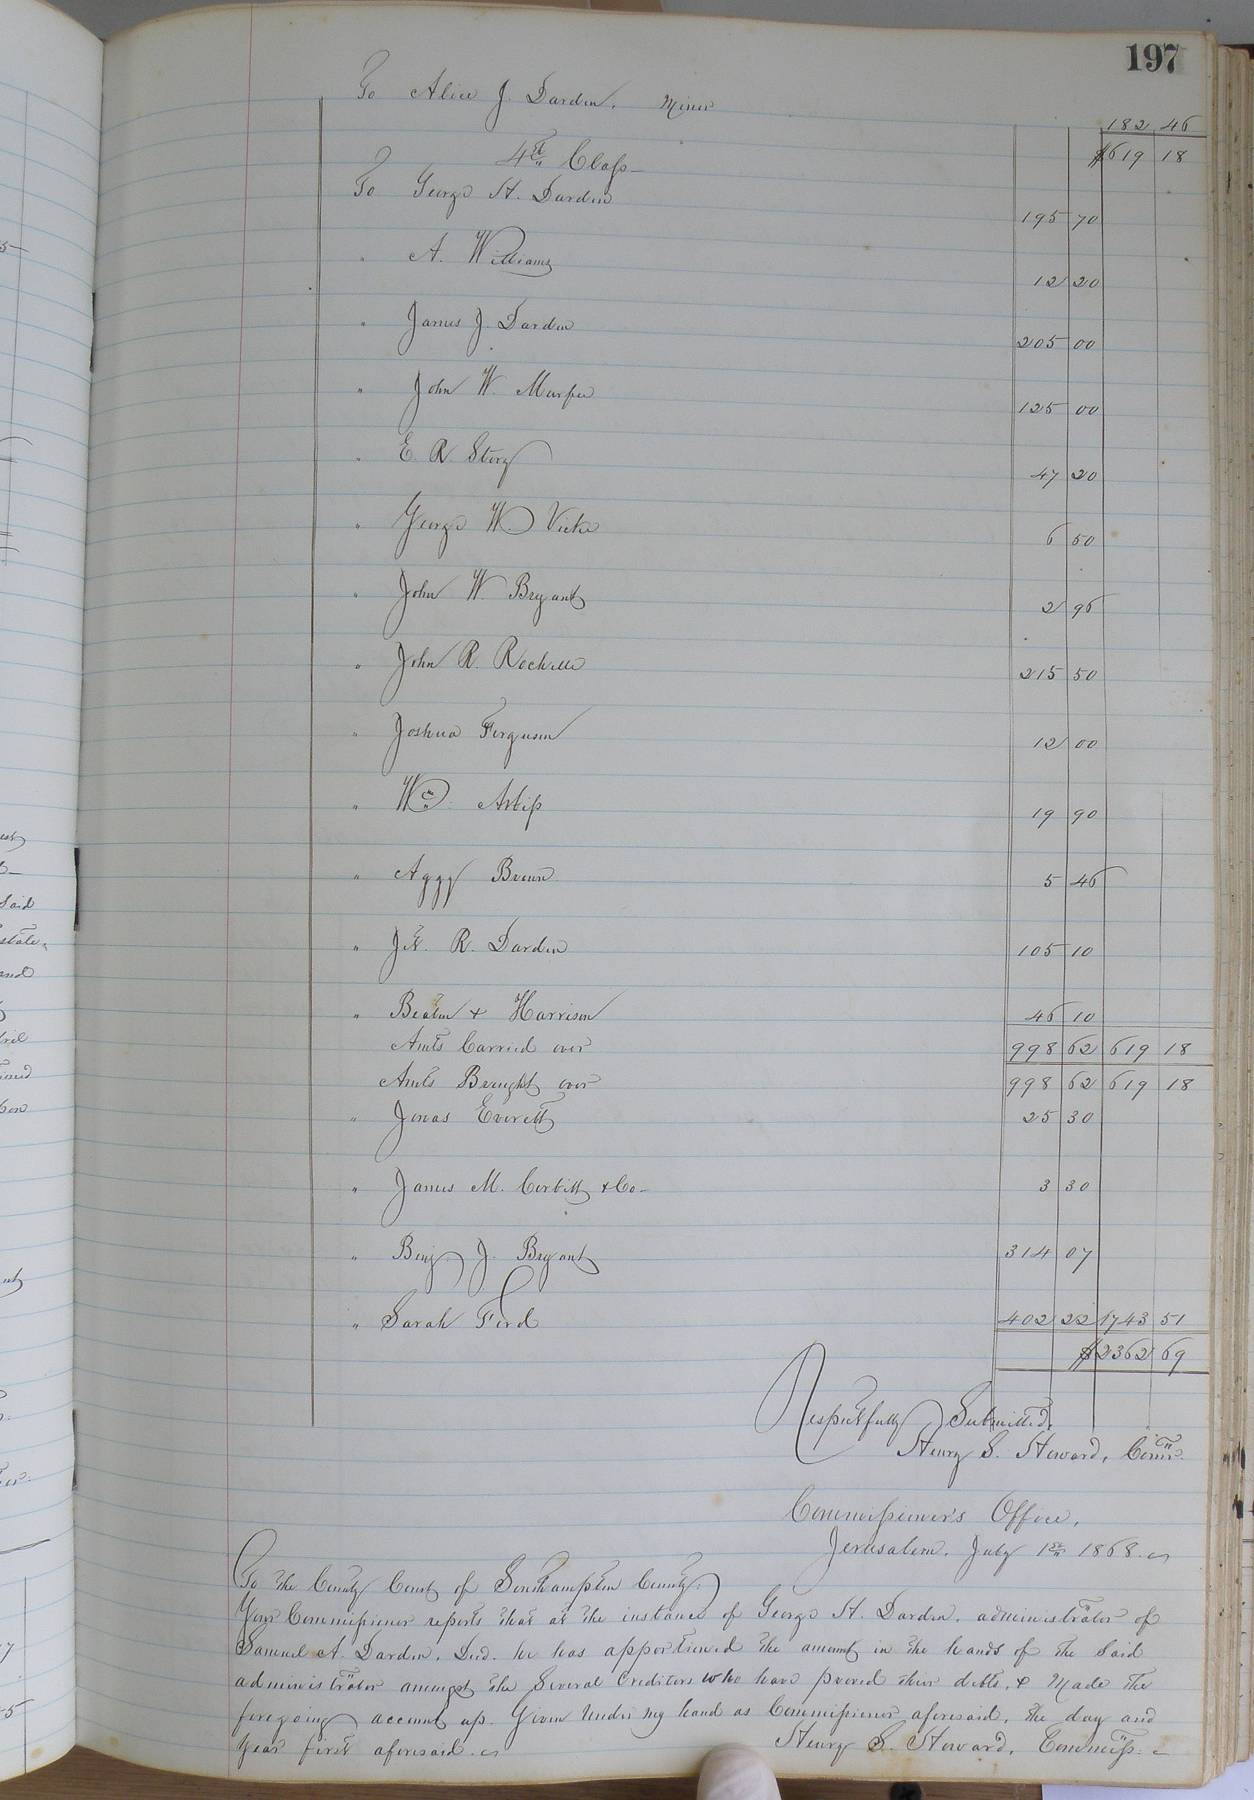 197
To Alice J. Darden, Minor 182 46
4th Class $619 18
To George H. Darden 195 70
" A. Williams 12 20
" James J. Darden 205 00
" John W. Murfee 125 00
" E. R. Story 47 20
" George W. Vick 6 50
" John W. Bryant 2 96
" John R. Rochelle 215 50
" Joshua Ferguson 12 00
" Wm Artis 19 90
" Aggy Brown 5 46
" Jet. R. Darden 105 10
" Beaton & Harrison 46 10
Amts Carried over 998 62 619 18
Amts Brought over 998 62 619 18
" Jonas Everett 25 30
" James M. Corbitt & Co- 3 30
" Benj. J. Bryant 314 07
" Sarah Ford 402 22 1743 51
$2362 69
Respectfully Submitted,
Henry S. Howard, Comr.
Commissioner's Office,
Jerusalem, July 1st 1868.
To the County Court of Southampton County;
Your Commissioner reports that at the instance of George H. Darden, administrator of
Samuel A. Darden, Decd. he has apportioned the amount in the hands of the Said
administrator amongst the Several Creditors who have proved their debts, & Made the
foregoing account up. Given under my hand as Commissioner aforesaid, the day and
year first aforesaid.
Henry S. Howard, Commiss.